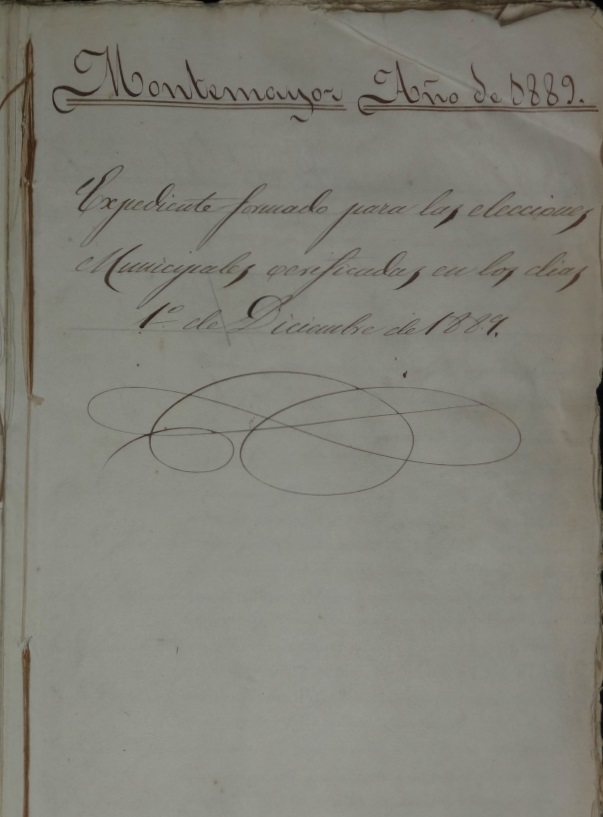 Montemayor Año de 1889.
Expediente formado para las elecciones
Municipales verificadas en los dias
1º de Diciembre de 1889.